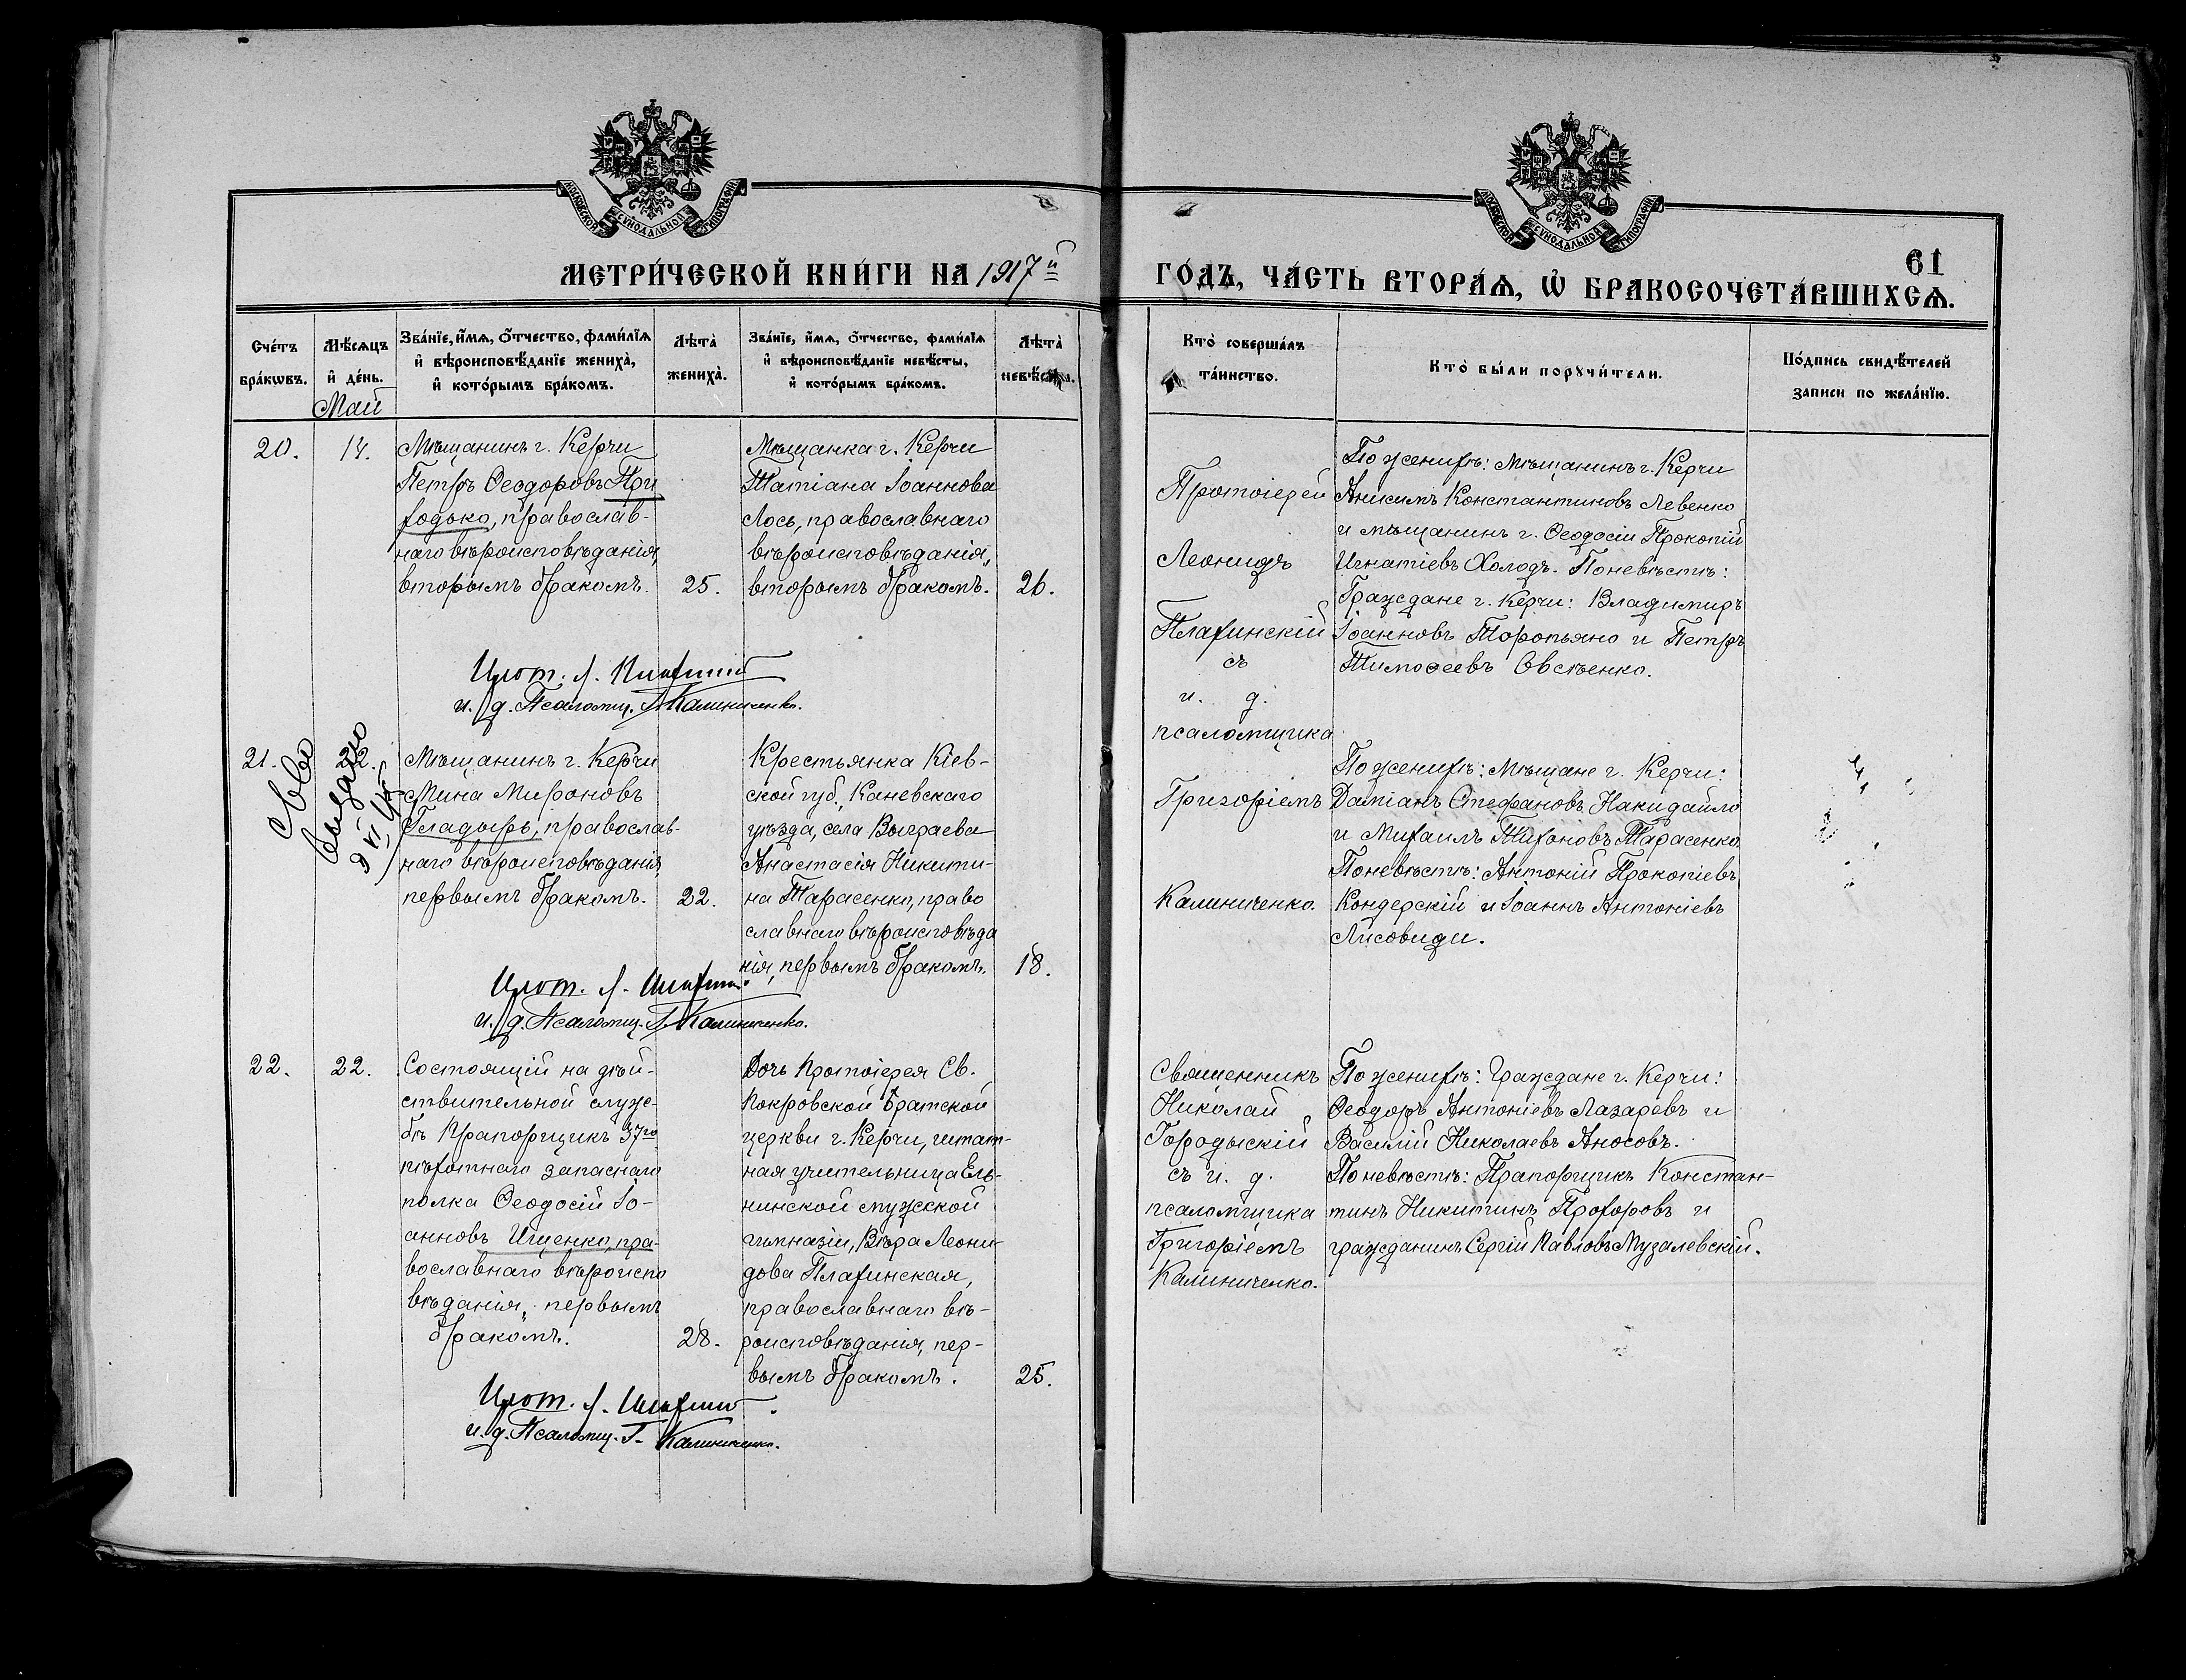 МОСКОВСКОЙ СУНОДАЛЬНОЙ ТИПОГРАФІИ
МОСКОВСКОЙ СУНОДАЛЬНОЙ ТИПОГРАФІИ
МЕТРИ́ЧЕСКОЙ КНИ́ГИ НА 1917й
ГО́ДЪ, ЧА́СТЬ ВТОРА́Ѧ, Ѽ БРАКОСОЧЕТА́ВШИХСѦ.
61
Сче́тъ бра́кѡвъ.
Мѣ́сѧцъ и҆ де́нь.
Зва́нїе, и҆́мѧ, ѻ҆́тчество, фами́лїѧ
и҆ вѣроисповѣ́данїе жениха̀,
и҆ кото́рымъ бра́комъ.
Лѣта̀ жениха̀.
Зва́нїе, и҆́мѧ, ѻ҆́тчество, фами́лїѧ
и҆ вѣроисповѣ́данїе невѣ́сты,
и҆ кото́рымъ бра́комъ.
Лѣта̀ невѣ́сты.
Кто̀ соверша́лъ
та́инство.
Кто̀ бы́ли порꙋчи́тели.
По́дпись свидѣ́телей
записи по жела́нїю.
Май
20.
14.
Мѣщанинъ г. Керчи
Петръ Ѳеодоровъ При
ходько, православ-
наго вѣроисповѣданія,
вторымъ бракомъ.
25.
Мѣщанка г. Керчи
Татіана Іоаннова
Лось, православнаго
вѣроисповѣданія,
вторымъ бракомъ.
26.
Прот. Л. Плахинскій
и. д. Псаломщ. Г. Калиниченко.
Протоіерей
Леонидъ
Плахинскій
съ
и. д.
псаломщика
Григоріемъ
Калиниченко.
По женихѣ: мѣщанинъ г. Керчи
Анисимъ Константиновъ Левенко
и мѣщанинъ г. Ѳеодосіи Прокопій
Игнатіевъ Холодъ. По невѣстѣ:
Граждане г. Керчи: Владимиръ
Іоанновъ Торопьяно и Петръ
Тимоѳеевъ Овсѣенко.
21.
22.
Св-во
выдано
Мѣщанинъ г. Керчи
Мина Мироновъ
Гладырь, православ-
наго вѣроисповѣданія
первымъ бракомъ.
22.
Крестьянка Кіев-
ской губ., Каневскаго
уѣзда, села Выграева
Анастасія Никити-
на Тарасенко, право
славнаго вѣроисповѣда
нія, первымъ бракомъ.
18.
Прот. Л. Плахинскій
и. д. Псаломщ. Г. Калиниченко.
По женихѣ: мѣщане г. Керчи:
Даміанъ Стефановъ Накидайло
и Михаилъ Тихоновъ Тарасенко.
По невѣстѣ: Антоній Прокопіевъ
Кондерскій и Іоаннъ Антоніевъ
Лисовиди.
22.
22.
Состоящій на дѣй-
ствительной служ-
бѣ Прапорщикъ 37го
пѣхотнаго запаснаго
полка Ѳеодосій Іо-
анновъ Ищенко, пра-
вославнаго вѣроиспо
вѣданія, первымъ
бракомъ.
28.
Дочь Протоіерея Св.
Покровской братской
церкви г. Керчи, штат-
ная учительница Ель-
нинской мужской
гимназіи, Вѣра Леони-
дова Плахинская,
православнаго вѣ-
роисповѣданія, пер-
вымъ бракомъ.
25.
Прот. Л. Плахинскій
и. д. Псаломщ. Г. Калиниченко.
Священникъ
Николай
Городыскій
съ и. д.
псаломщика
Григоріемъ
Калиниченко.
По женихѣ: Граждане г. Керчи:
Ѳеодоръ Антоніевъ Лазаревъ и
Василій Николаевъ Аносовъ.
По невѣстѣ: Прапорщикъ Констан-
тинъ Никитинъ Прохоровъ и
гражданинъ Сергій Павловъ Музалевскій.